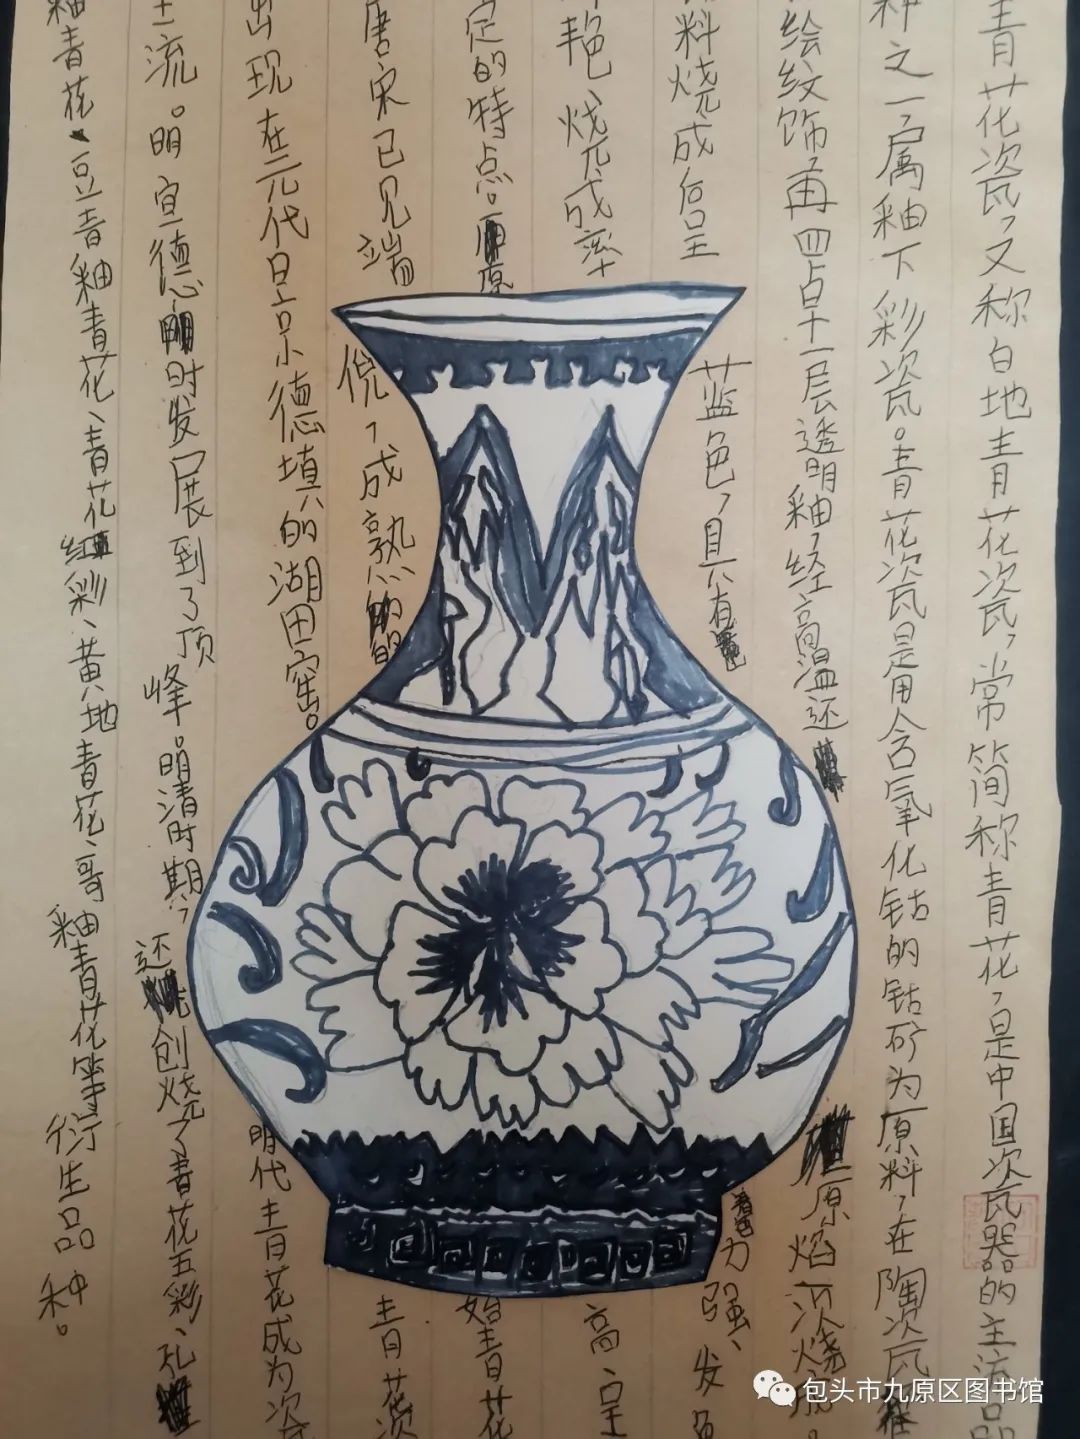 青花次瓦，又称白地青花次瓦，常简称青花，是中国次瓦器的主流品
种之一，属釉下彩次瓦。青花次瓦是用含氧化钴的钴矿为原料，在陶次瓦
绘纹饰，再四占十一层透明釉，经高温还
原焰一次烧成。
料烧成后呈
蓝色，具有
力强、发色
艳、烧成率
高、呈
定的特点。原
始青花
唐宋已见端
倪，成熟的
青花
出现在元代景德填的湖田窑。
明代青花成为次
主流。明宣德时发展到了顶
峰。明清时期，
还创烧了青花五彩、孔
釉青花、豆青釉青花、青花红彩、黄地青花、哥
釉青花等
衍生品种。
包头市九原区图书馆